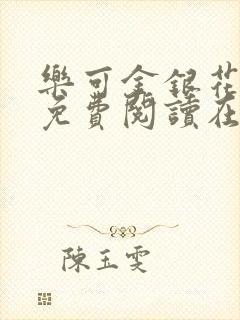 樂可金銀花
免費閱讀在
陳玉雯